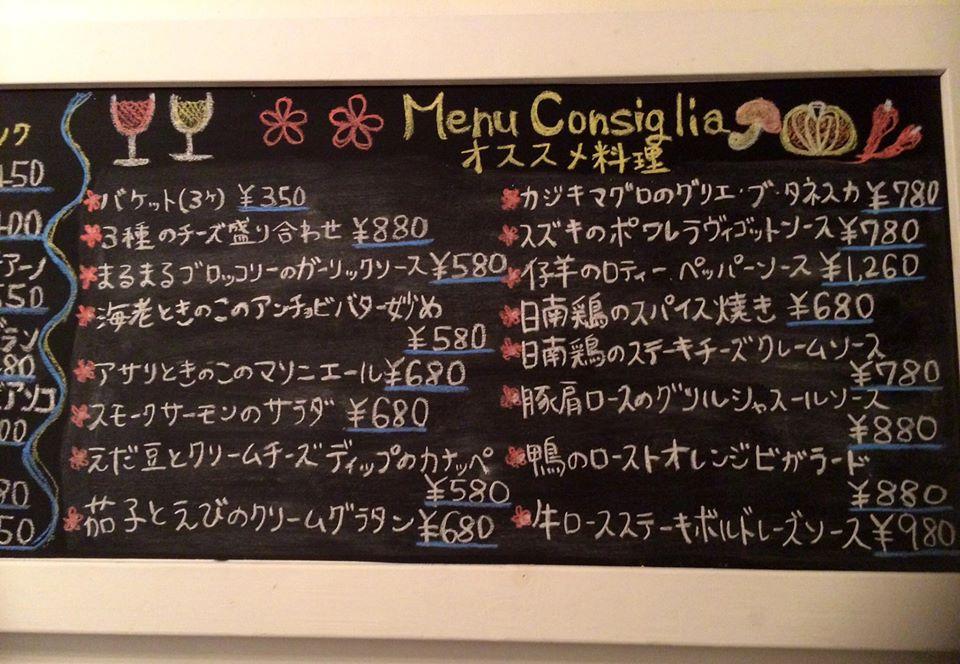 ンク
450
400
アーノ
550
ブラン
480
ビアンコ
Menu Consiglia
オススメ料理
バケット(3ヶ) ¥350
3種のチーズ盛り合わせ ¥880
まるまるブロッコリーのガーリックソース ¥580
海老ときのこのアンチョビバター炒め
¥580
アサリときのこのマリニエール ¥680
スモークサーモンのサラダ ¥680
えだ豆とクリームチーズディップのカナッペ
¥580
茄子とえびのクリームグラタン ¥680
カジキマグロのグリエ・ブ・タネスカ ¥780
スズキのポワレラヴィゴットソース ¥780
仔羊のロティー ペッパーソース ¥1,260
日南鶏のスパイス焼き ¥680
日南鶏のステーキチーズクレームソース
¥780
豚肩ロースのグリルシャスールソース
¥880
鴨のローストオレンジビガラード
¥880
牛ロースステーキボルドレーズソース ¥980